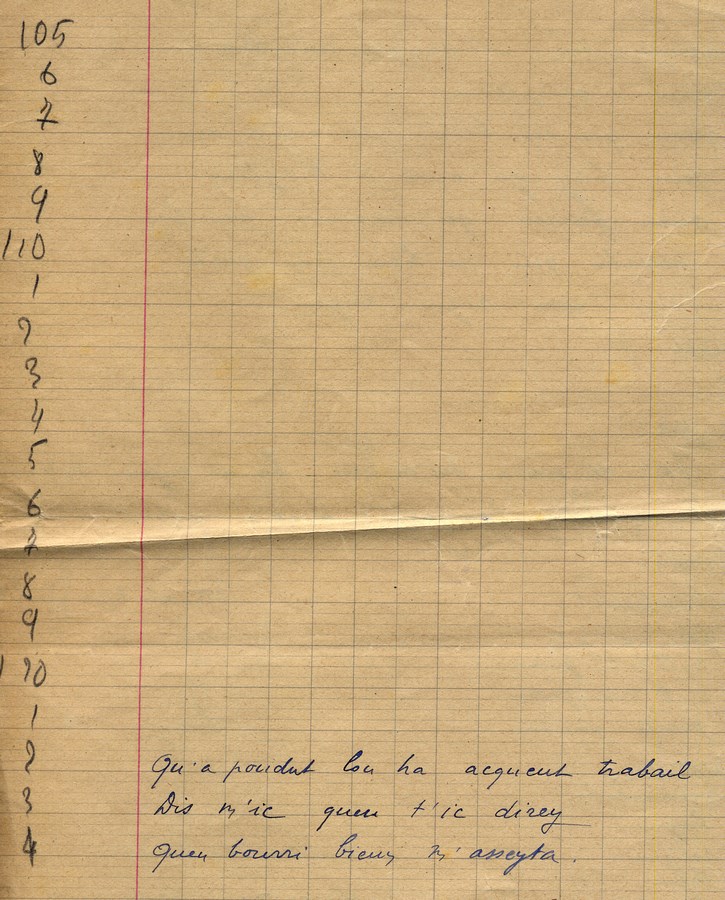 105
6
7
8
9
110
1
2
3
4
5
6
7
8
9
120
1
2 Qu'a poudut lou ha aqueut trabail
3 Dis m'ic queu t'ic direy
4 Queu bourri bienn m'asseyta.